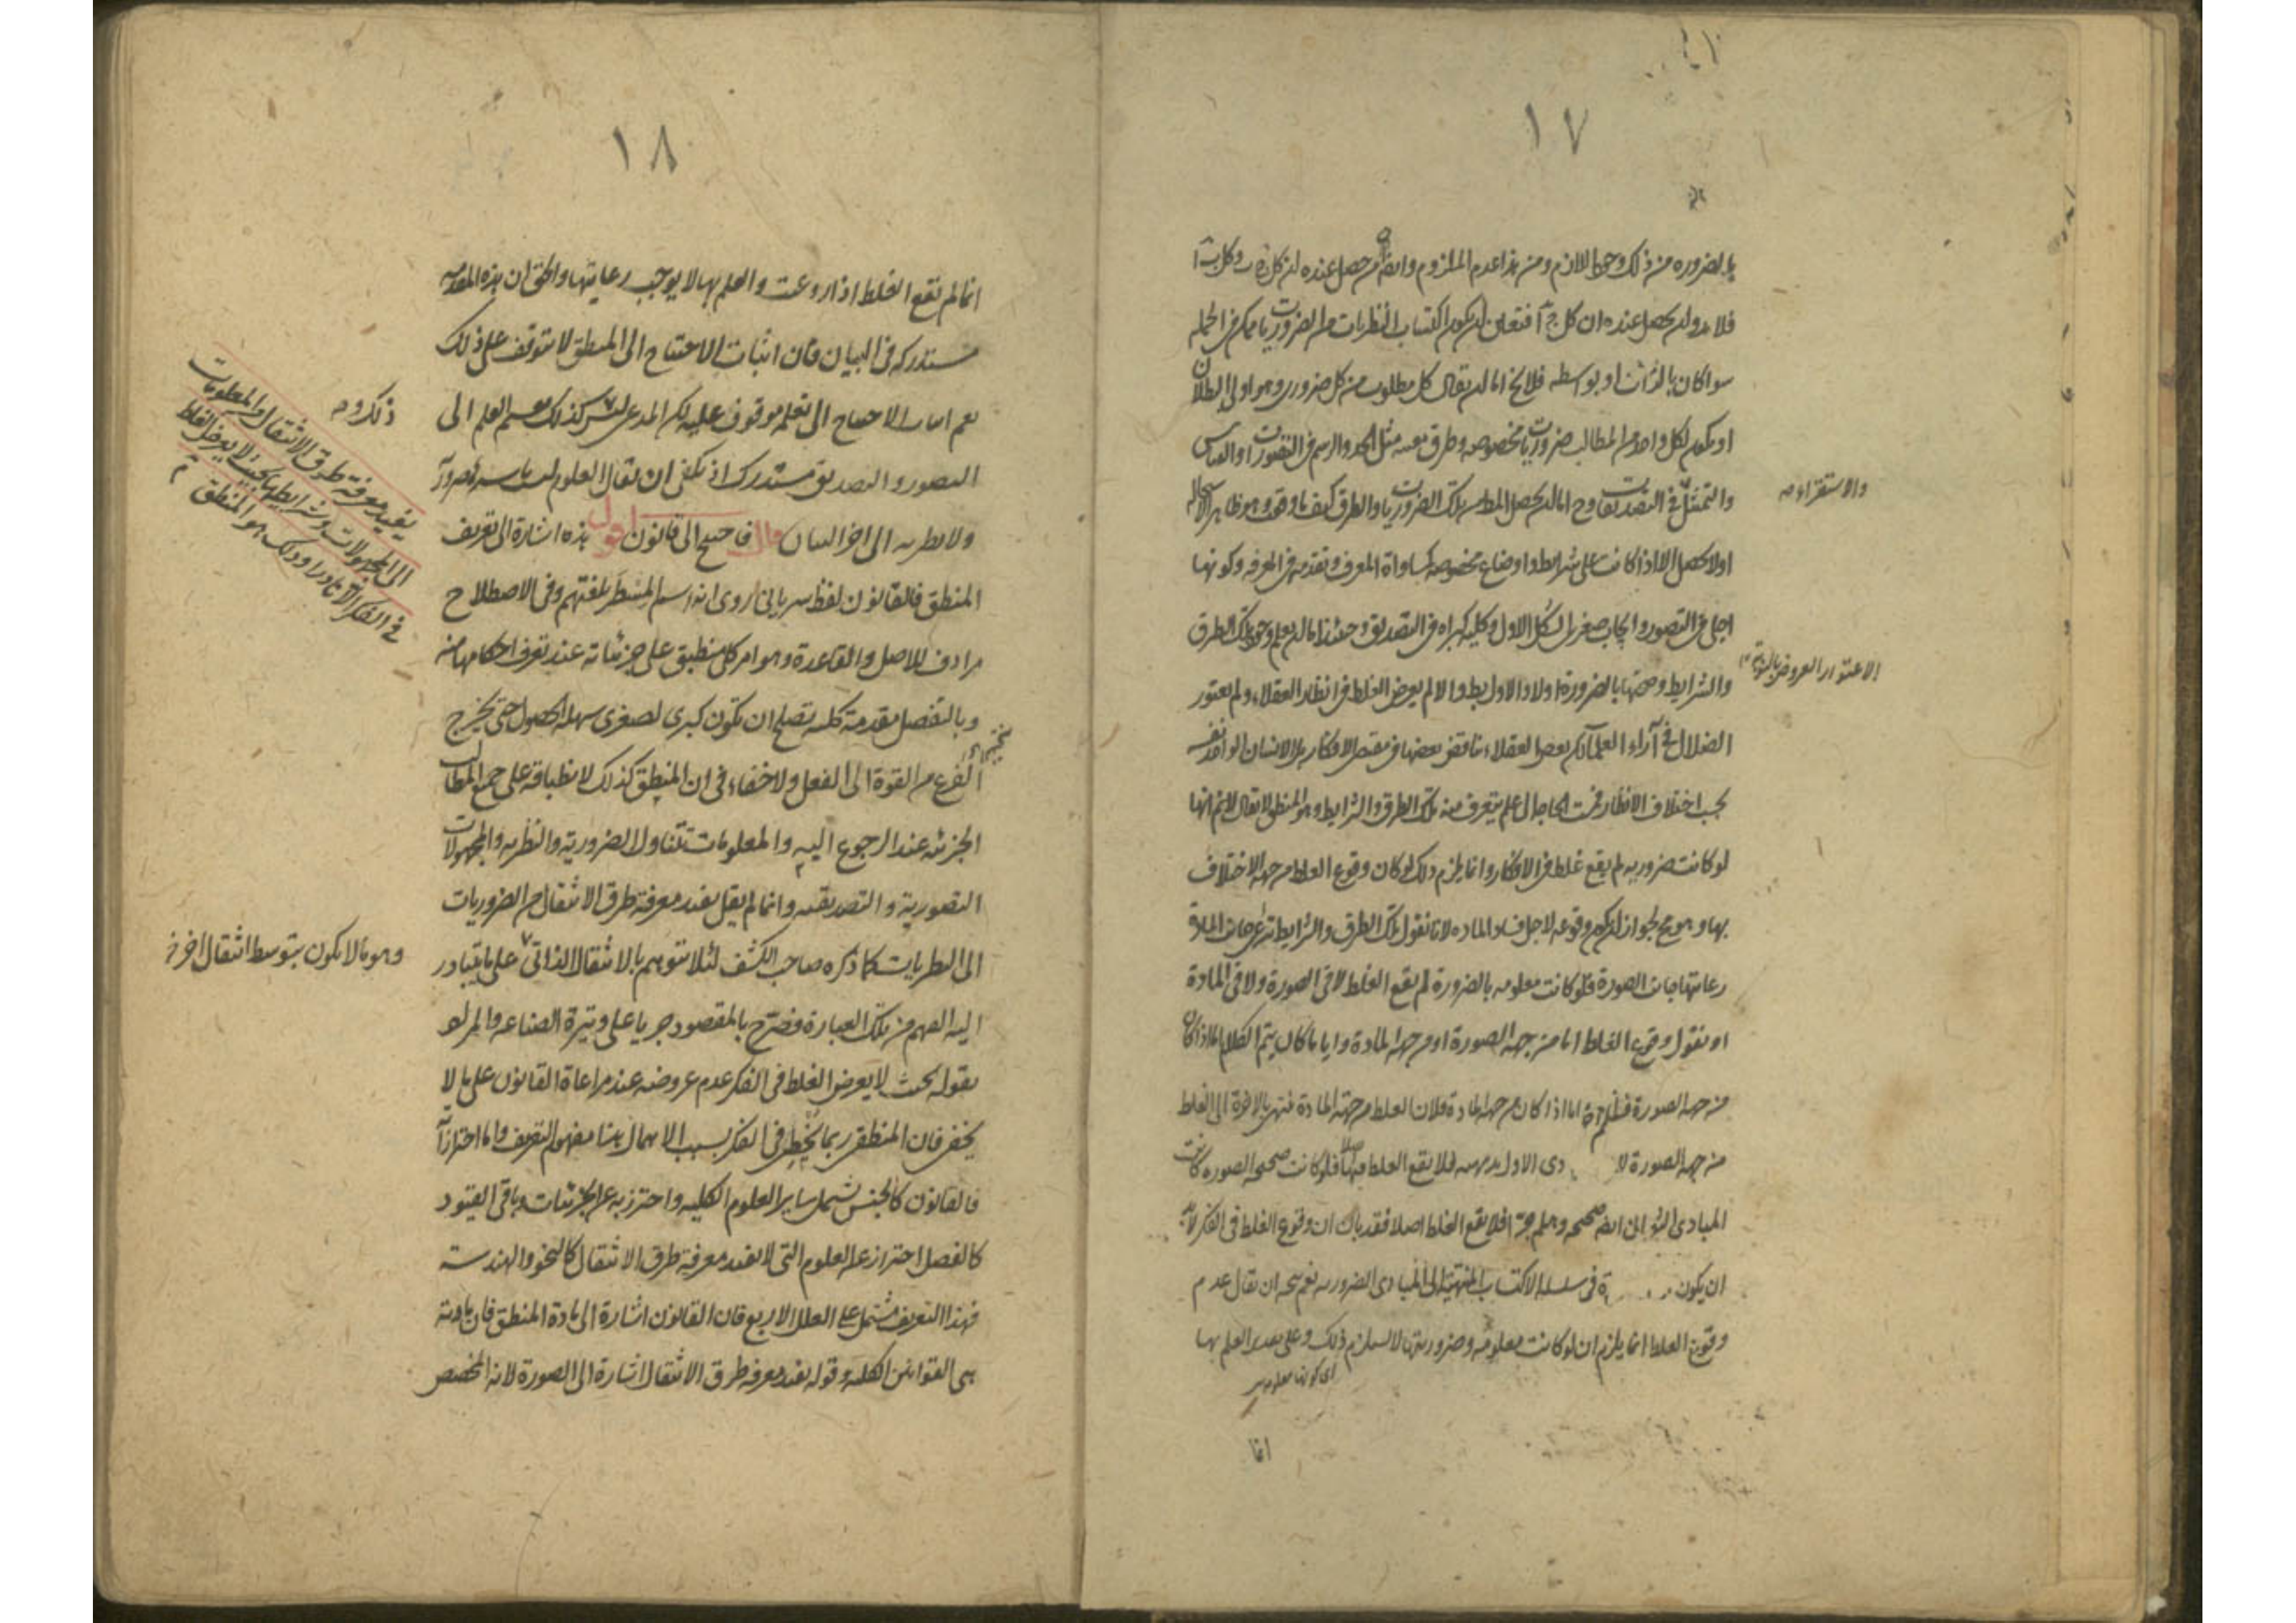 ١٧
بالضرورة من ذلك وجود اللازم ومن هذا عدم الملزوم وايضا من حصل عنده ان كل وكل
فلا بد ان يحصل عنده ان كل ج آ فتعين ان يكون اكتساب النظريات من الضروريات ممكن في الجملة
سوا كان بالذات او بواسطة فلا يخ اما ان يقال كل مطلوب من كل ضروري وهو اولى البطلان
او يكون لكل واحد من المطالب ضروريات مخصوصه وطرق معينه مثل الحد والرسم في التصورات او القياس
والتمثيل في التصديقات وح اما ان يحصل المط من تلك الضروريات والطرق كيف ما وقع وهو ظاهر الاستحالة
والاستقراء صح
او لا يحصل الا اذا كانت على شرايط واوضاع مخصوصه كمساواة المعرف وتقدمه في المعرفه وكونها
اجلى في التصور وايجاب صغرى الشكل الاول وكلية كبراه في التصديق وحينئذ اما ان يعلم وجود تلك الطرق
والشرايط وصحتها بالضرورة اولا والاول بط والا لم يعرض الغلط في انظار العقلاء ولم يعتور
الاعتوار العروض بالنوبة
الضلال في آراء العلماء لكن بعض العقلاء يناقض بعضها في مقتضى الافكار بل الانسان الواحد نفسه
بحسب اختلاف الانظار فمست الحاجة الى علم يتعرف منه تلك الطرق والشرايط وهو المنطق لا يقال لانم انها
لو كانت ضروريه لم يقع غلط في الافكار وانما يلزم ذلك لو كان وقوع الغلط من جهة الاختلاف
بها وهو مم لجواز ان يكون وقوعه لاجل فساد المادة لانا نقول تلك الطرق والشرايط تراعى جانب المادة
رعايتها جانب الصورة فلو كانت معلومه بالضرورة لم يقع الغلط لا في الصورة ولا في المادة
او نقول وقوع الغلط اما من جهة الصورة او من جهة المادة وايا ما كان يتم الكلام اما اذا كان
من جهة الصورة فظاهر واما اذا كان من جهة المادة فلان الغلط من جهة المادة منتهى بالاخرة الى الغلط
من جهة الصورة لا دى الاول بديهيه فلا يقع الغلط فيها اصلا فلو كانت صحيحه الصورة كانت
المبادى الثوانى ايضا صحيحه وهلم جرا فلا يقع الغلط اصلا فقد بان ان وقوع الغلط في الفكر لابد
ان يكون فى سلسلة الاكتساب المنتهية الى المبادى الضروريه نعم يتجه ان يقال عدم
وقوع الغلط انما يلزم ان لو كانت معلومه وضروريتها لا يستلزم ذلك وعلى تقدير العلم بها
اى كونها معلومة
انما
١٨
انما لم يقع الغلط اذا روعت والعلم بها لا يوجب رعايتها والحق ان هذه المقدمه
مستدركه فى البيان فان اثبات الاحتياج الى المنطق لا يتوقف على ذلك
نعم اما الاحتياج الى تعلمه موقوف عليه لكن المدعى ليس كذلك تقسيم العلم الى
ذكروه
التصور والتصديق مستدرك اذ يكفى ان يقال العلوم ليست باسرها ضرورية
ولا نظريه الى اخر البيان قال فاحتيج الى قانون اقول هذه اشارة الى تعريف
يفيد معرفة طرق الانتقال من المعلومات
الى المجهولات وشرايطها بحيث لا يعرض الغلط
فى الفكر الا نادرا وذلك هو المنطق
المنطق فالقانون لفظ سريانى روى انه اسم المسطر بلغتهم وفى الاصطلاح
مرادف للاصل والقاعدة وهو امر كلى منطبق على جزئياته عند تعرف احكامها منه
وبالتفصيل مقدمة كليه تصلح ان تكون كبرى لصغرى سهلة الحصول حتى يخرج
الفرع من القوة الى الفعل ولا خفاء فى ان المنطق كذلك لانطباقه على جميع المطالب
الجزئيه عند الرجوع اليه والمعلومات تتناول الضرورية والنظريه والمجهولات
التصورية والتصديقيه وانما لم يقل يفيد معرفة طرق الانتقال من الضروريات
الى النظريات كما ذكره صاحب الكشف لئلا يتوهم بالانتقال الذاتى على ما يتبادر
وهو ما لا يكون بتوسط انتقال اخر
اليه الفهم من تلك العبارة فصرح بالمقصود جريا على وتيرة الصناعه والمراد
بقوله بحيث لا يعرض الغلط فى الفكر عدم عروضه عند مراعاة القانون على ما لا
يخفى فان المنطقى ربما يخطئ فى الفكر بسبب الاهمال هذا مفهوم التعريف واما احترازاته
فالقانون كالجنس يشمل ساير العلوم الكليه واحترز به عن الجزئيات وباقى القيود
كالفصل احتراز عن العلوم التى لا يفيد معرفة طرق الانتقال كالنحو والهندسة
فهذا التعريف مشتمل على العلل الاربع فان القانون اشارة الى مادة المنطق فان مادته
هى القوانين الكليه وقوله يفيد معرفة طرق الانتقال اشارة الى الصورة لانه المخصص